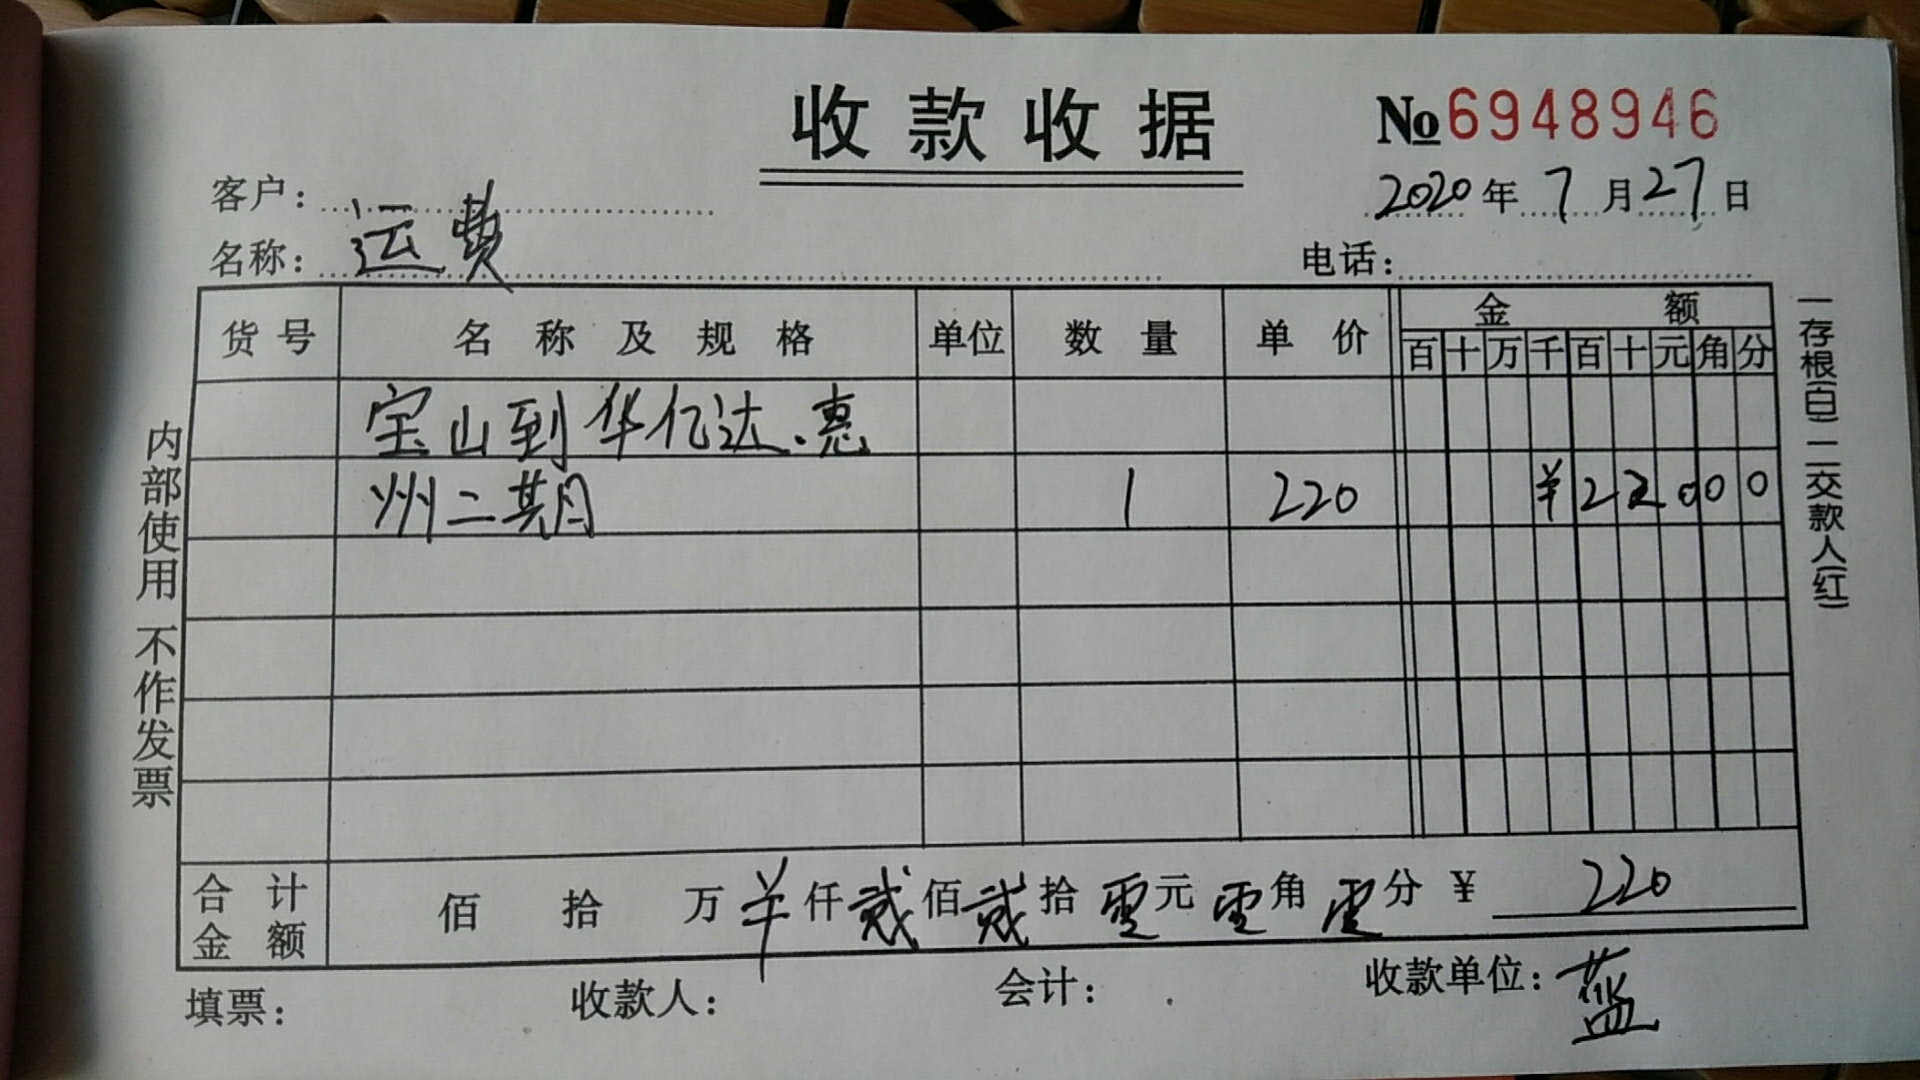 收款收据
№6948946
客户：
2020年7月27日
名称：运费
电话：
货号 名称及规格 单位 数量 单价 金额
百十万千百十元角分
宝山到华亿达、惠
州二期 1 220 ¥22000
合计金额 佰 拾 万 ¥仟贰佰贰拾零元零角零分 ¥220
填票： 收款人： 会计： 收款单位：蓝
内部使用 不作发票
一存根(白)二交款人(红)